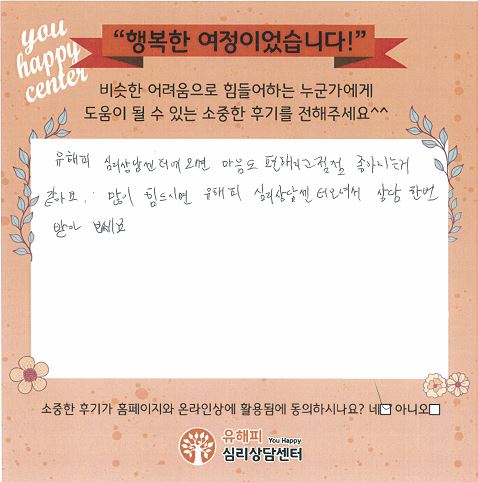 you
happy
center
“행복한 여정이었습니다!”
비슷한 어려움으로 힘들어하는 누군가에게
도움이 될 수 있는 소중한 후기를 전해주세요^^
유해피 심리상담센터에 오면 마음도 편해지고 점점 좋아지는게
같아요. 많이 힘드시면 유해피 심리상담센터 와서 상담 한번
받아 보세요
소중한 후기가 홈페이지와 온라인상에 활용됨에 동의하시나요? 네☑ 아니오☐
유해피 You Happy
심리상담센터